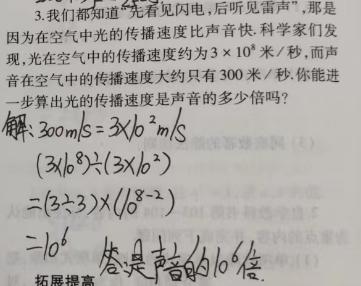 3.我们都知道“先看见闪电,后听见雷声”,那是
因为在空气中光的传播速度比声音快.科学家们发
现,光在空气中的传播速度约为3×10⁸米/秒,而声
音在空气中的传播速度大约只有300米/秒.你能进
一步算出光的传播速度是声音的多少倍吗?
解:300m/s=3×10²m/s
(3×10⁸)÷(3×10²)
=(3÷3)×(10⁸⁻²)
=10⁶
答:是声音的10⁶倍.
拓展提高